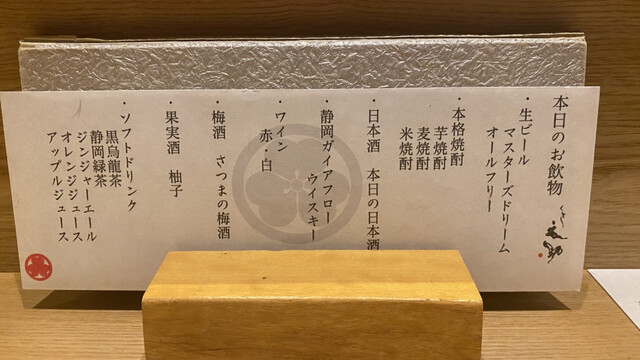 本日のお飲物
・生ビール
マスターズドリーム
オールフリー
・本格焼酎
芋焼酎
麦焼酎
米焼酎
・日本酒 本日の日本酒
・静岡ガイアフロー
ウイスキー
・ワイン
赤・白
・梅酒 さつまの梅酒
・果実酒 柚子
・ソフトドリンク
黒烏龍茶
静岡緑茶
ジンジャーエール
オレンジジュース
アップルジュース